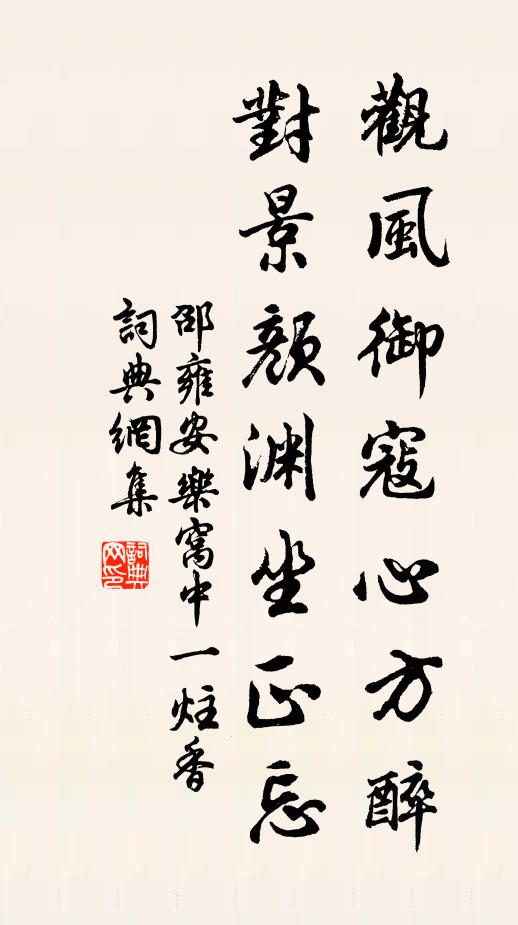 觀風御寇心方醉
對景顏淵坐正忘
邵雍安樂窩中一炷香
詞典網集
詞典網印